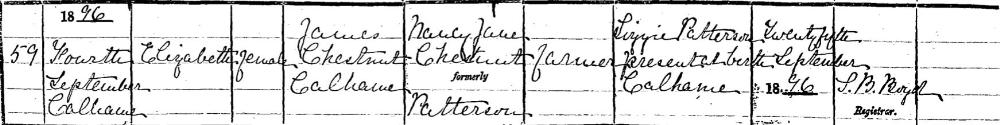 1896
James Nancy Jane Lizzie Patterson Twentyfifth
59 Fourth Elizabeth female Chestnut Chestnut farmer present at birth September
September Calhame formerly Calhame 1896 S. B. Boyd
Calhame Patterson Registrar.